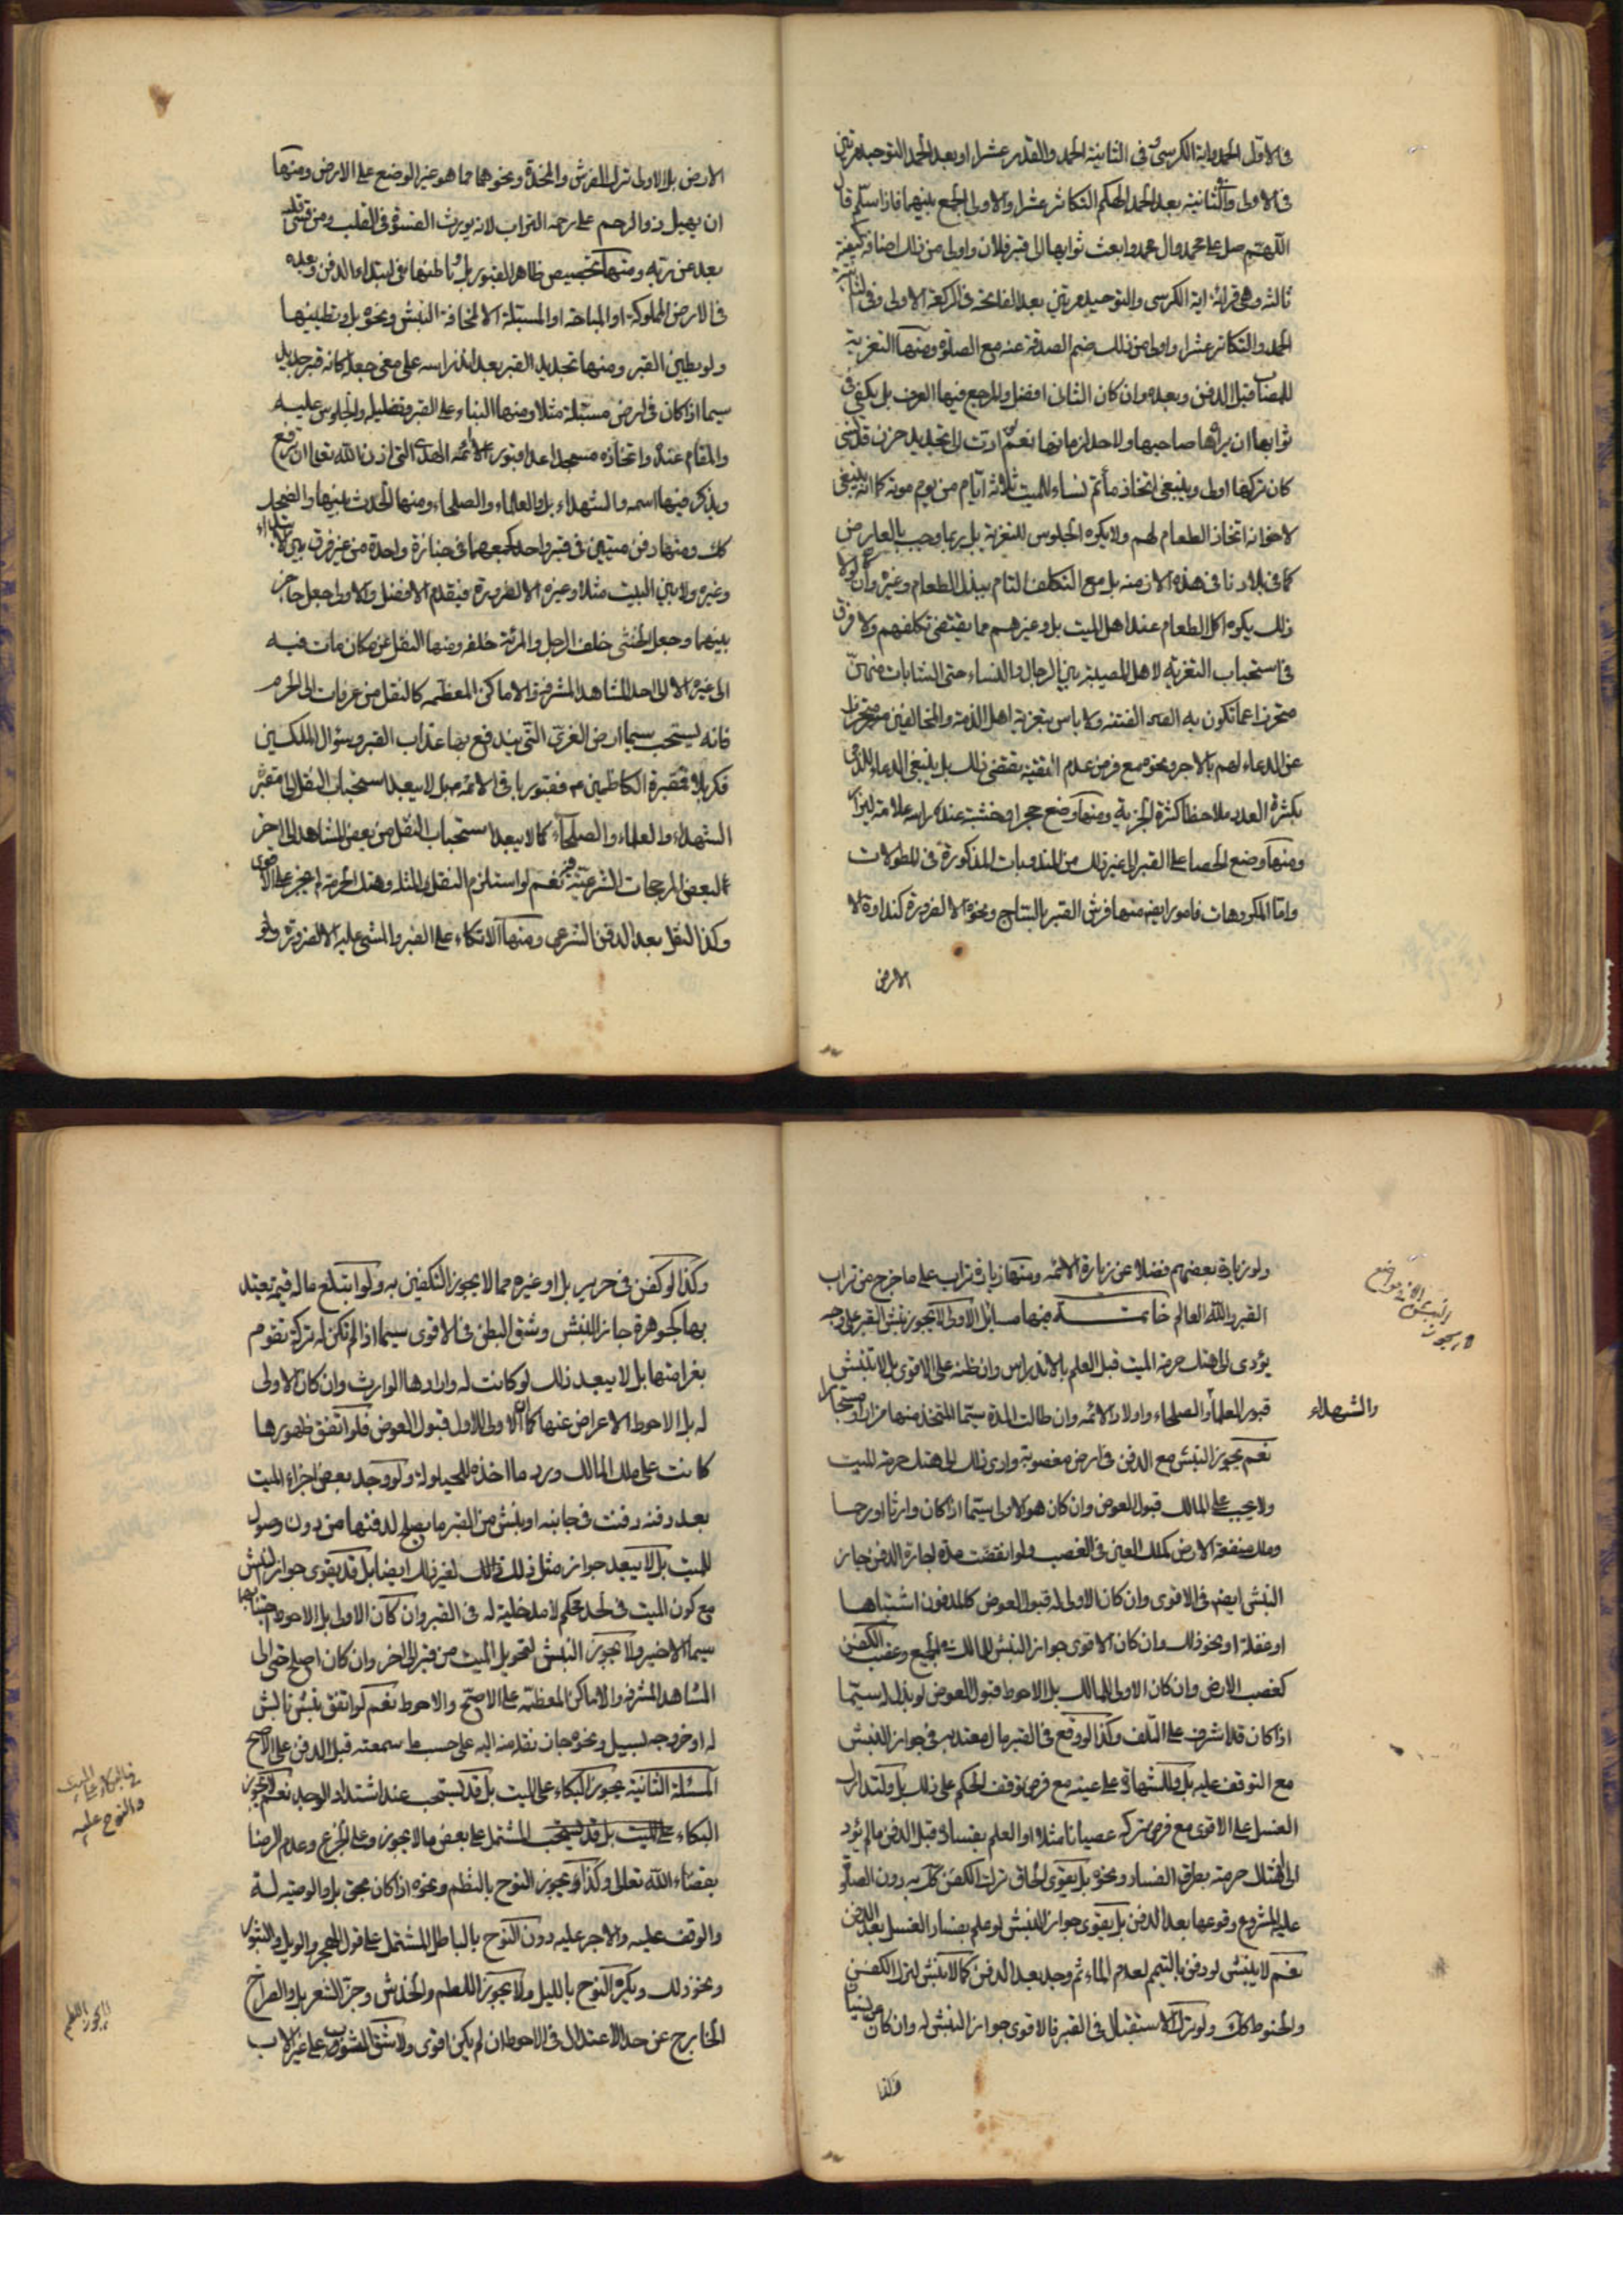 في الاول الحمد واية الكرسي و في الثانية الحمد والقدر عشرا او بعد الحمد التوحيد مرتين
في الاولى وفي الثانية بعد الحمد الهيكم التكاثر عشرا والاولى الجمع بينهما فاذا سلم قال
اللهم صل على محمد وال محمد وابعث ثوابها الى قبر فلان واولى من ذلك اضافة كيفية
ثالثه وهى قرائة اية الكرسي والتوحيد مرتين بعد الفاتحة في الركعة الاولى وفي الثانية
الحمد والتكاثر عشرا واولى من ذلك ضم الصدقة عنه مع الصلوة ومنها التعزية
للمصاب قبل الدفن وبعده وان كان الثاني افضل والمرجع فيها العرف بل يكفي في
ثوابها ان يراها صاحبها ولا حد لزمانها نعم لو ادت الى تجديد حزن قد نسي
كان تركها اولى وينبغي اتخاذ مأتم نساء للميت ثلاثة ايام من يوم موته كما انه ينبغي
لاخوانه اتخاذ الطعام لهم ولا يكره الجلوس للتعزية بل ربما وجب بالعارض
كما في بلادنا في هذه الازمنه بل مع التكلف التام ببذل الطعام وغيره وان لولا
ذلك يكره اكل الطعام عند اهل الميت بل وغيرهم مما يقتضي تكلفهم ولا فرق
في استحباب التعزية لاهل المصيبة بين الرجال والنساء حتى الشابات منهن
متحرزا عما تكون به الفتنه ولا باس بتعزية اهل الذمة والمخالفين متحرزا
عن الدعاء لهم بالاجر ونحوه مع فرض عدم التقية تقتضي ذلك بل ينبغي الدعاء للذمي
بكثرة العدد ملاحظا كثرة الجزية ومنها وضع حجر او خشبة عند راسه علامة ليزار
ومنها وضع الحصا على القبر الى غير ذلك من المندوبات المذكورة في المطولات
واما المكروهات فامور ايضا منها فرش القبر بالساج ونحوه الا لضرورة كنداوة الا
الارض
الارض بل الاولى ترك الفرش والمخدة ونحوهما مما هو غير الوضع على الارض ومنها
ان يهيل ذو الرحم على رحمه التراب لانه يورث القسوة في القلب ومن قسى قلبه
بعد عن ربه ومنها تجصيص ظاهر القبور بل وباطنها في ابتداء الدفن وبعده
في الارض المملوكة او المباحة او المسبلة الا لمخافة النبش ونحوه بل وتطيينها
ولو بطين القبر ومنها تجديد القبر بعد اندراسه على معنى جعله كانه قبر جديد
سيما اذا كان في ارض مسبلة مثلا ومنها البناء على القبر وتظليله والجلوس عليه
والمقام عنده واتخاذه مسجدا عدا قبور الائمه الهدى التي اذن الله تعالى ان ترفع
ويذكر فيها اسمه والشهداء بل والعلماء والصلحاء ومنها الحدث بينها والضحك
كك ومنها دفن ميتين في قبر واحد كجمعهما في جنازة واحدة من غير فرق بين الابتداء
وغيره ولا بين البيت مثلا وغيره الا لضرورة فيقدم الافضل والاولى جعل حاجز
بينهما وجعل الخنثى خلف الرجل والمرئة خلفه ومنها النقل عن مكان مات فيه
الى غيره الا الى احد المشاهد المشرفة والاماكن المعظمه كالنقل من عرفات الى الحرم
فانه يستحب سيما ارض الغري التي يندفع بها عذاب القبر وسؤال الملكين
فكربلاء فمقبرة الكاظمين فقبور باقي الائمة بل لا يبعد استحباب النقل الى مقبر
الشهداء والعلماء والصلحاء كما لا يبعد استحباب النقل من بعض المشاهد الى اخر
لبعض المرجحات الشرعية نعم لو استلزم النقل المثله وهتك الحرمة لم يجز على الاقوى
وكذا النقل بعد الدفن الشرعي ومنها الاتكاء على القبر والمشي عليه الا لضرورة ولو
ولو زيارة بعضهم فضلا عن زيارة الائمه ومنها زيادة تراب على ما خرج من تراب
القبر والله العالم خاتمـــة فيها مسائل الاولى لا يجوز نبش القبر على وجه
يؤدي الى هتك حرمة الميت قبل العلم بالاندراس وان ظنه على الاقوى بل لا تنبش
قبور العلماء والصلحاء واولاد الائمه وان طالت المدة سيما المتخذ منها مزارا ومستجارا
والشهداء
نعم يجوز النبش مع الدفن في ارض مغصوبة وادى ذلك الى هتك حرمة الميت
ولا يجب على المالك قبول العوض وان كان هو الاولى سيما اذا كان وارثا او رحما
وملك منفعة الارض كملك العين في الغصب ولو انقضت مدة اجارة الدفن جاز
النبش ايضا في الاقوى وان كان الاولى له قبول العوض كالمدفون اشتباها
او غفلة او نحو ذلك وان كان الاقوى جواز النبش للمالك في الجميع وغصب الكفن
كغصب الارض وان كان الاولى للمالك بل الاحوط قبول العوض لو بذل له سيما
اذا كان قد اشرف على التلف وكذا لو وقع في القبر مال معتد به في جواز النبش
مع التوقف عليه بل وللشهادة على عينه مع فرض توقف الحكم على ذلك بل ولتدارك
الغسل على الاقوى مع فرض تركه عصيانا مثلا او العلم بفساده قبل الدفن ما لم يؤد
الى هتك حرمته بطرق الفساد ونحوه بل يقوى لحاق ترك الكفن كك به دون الصلوة
عليه المشروع وقوعها بعد الدفن بل يقوى جواز النبش لو علم بفساد الغسل بعد الدفن
نعم لا ينبش لو دفن بالتيمم لعدم الماء ثم وجد بعد الدفن كما لا ينبش لترك الكفن
والحنوط كك ولو ترك الاستقبال في القبر فالاقوى جواز النبش له وان كان عن نسيان
وكذا
وكذا لو كفن في حرير بل او غيره مما لا يجوز التكفين به ولو ابتلع ماله قيمة يعتد
بها كجوهرة جاز النبش وشق البطن في الاقوى سيما اذا لم تكن له تركة تقوم
بغرامتها بل لا يبعد ذلك لو كانت له وارادها الوارث وان كان الاولى
له بل الاحوط الاعراض عنها كما ان الاولى للاول قبول العوض فلو اتفق ظهورها
كانت على ملك المالك ورد ما اخذه للحيلولة ولو وجد بعض اجزاء الميت
بعد دفنه دفنت في جانبه او ينبش من القبر ما يصلح لدفنها من دون وصول
للميت بل لا يبعد جواز مثل ذلك لغير ذلك ايضا بل قد يقوى جواز النبش
مع كون الميت في لحد محكم لا مدخلية له في القبر وان كان الاولى بل الاحوط اجتنابهما
سيما الاخير ولا يجوز النبش لتحويل الميت من قبر الى اخر وان كان اصلح حتى الى
المشاهد المشرفه والاماكن المعظمه على الاصح والاحوط نعم لو اتفق نبش نابش
له او خروجه لسيل ونحوه جاز نقله منه اليه على حسب ما سمعته قبل الدفن على الاصح
المسئلة الثانية يجوز البكاء على الميت بل قد يستحب عند اشتداد الوجد نعم لا يجوز
البكاء على الميت بل قد يستحب المشتمل على بعض ما لا يجوز وعلى الجزع وعدم الرضا
بقضاء الله تعالى وكذا ويجوز النوح بالنظم ونحوه اذا كان بحق بل والوصية له
والوقف عليه والاجر عليه دون النوح بالباطل المشتمل على قول الهجر والويل والثبور
ونحو ذلك ويكره النوح بالليل ولا يجوز اللطم والخدش وجز الشعر بل والصراخ
الخارج عن حد الاعتدال في الاحوط ان لم يكن اقوى ولا شق الثوب على غير الاب
في البكاء على الميت
والنوح عليه